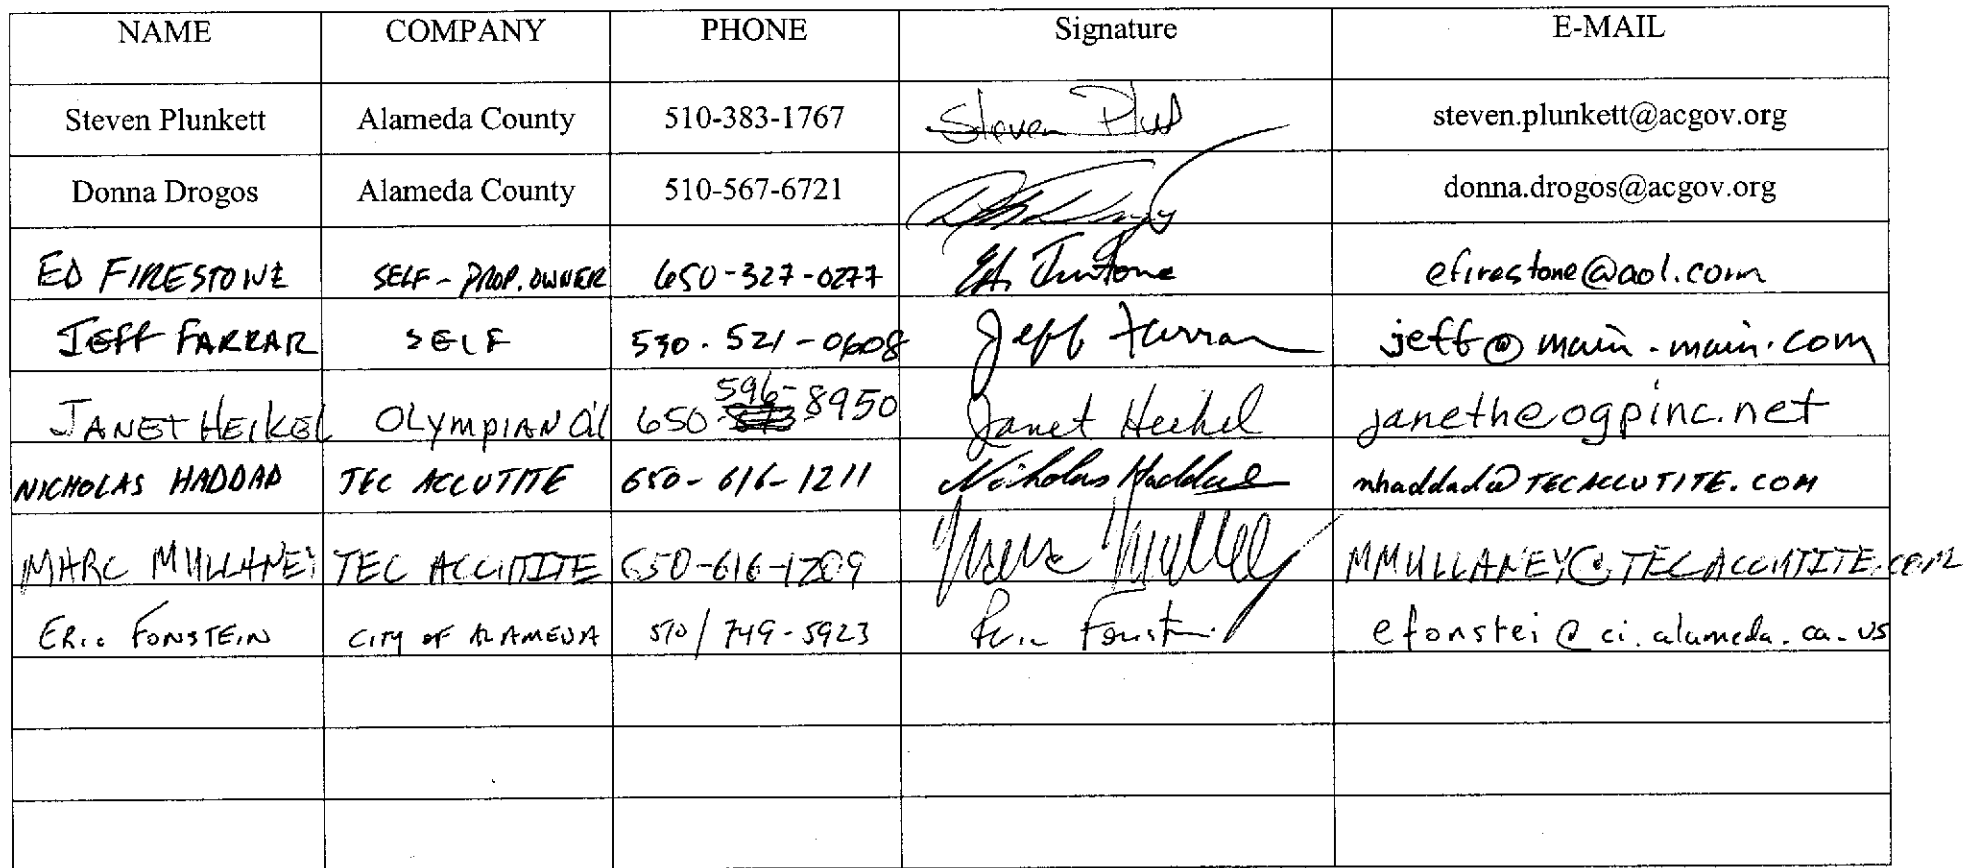 NAME COMPANY PHONE Signature E-MAIL
Steven Plunkett Alameda County 510-383-1767 Steven Plu steven.plunkett@acgov.org
Donna Drogos Alameda County 510-567-6721 donna.drogos@acgov.org
ED FIRESTONE SELF - PROP. OWNER 650-327-0277 efirestone@aol.com
JEFF FARRAR SELF 530.521-0608 Jeff Farrar jeff@main-main.com
JANET HEIKEL OLYMPIAN Oil 650 596-8950 Janet Heikel janethe ogpinc.net
NICHOLAS HADDAD TEC ACCUTITE 650-616-1211 Nicholas Haddad nhaddad@TECACCUTITE.COM
MARC MULLANEY TEC ACCUTITE 650-616-1209 Marc Mulley MMULLANEY@TECACCUTITE.COM
ERic FONSTEiN CITY OF ALAMEDA 510/749-5923 Eric Fonstein efonstei@ci.alameda.ca.us